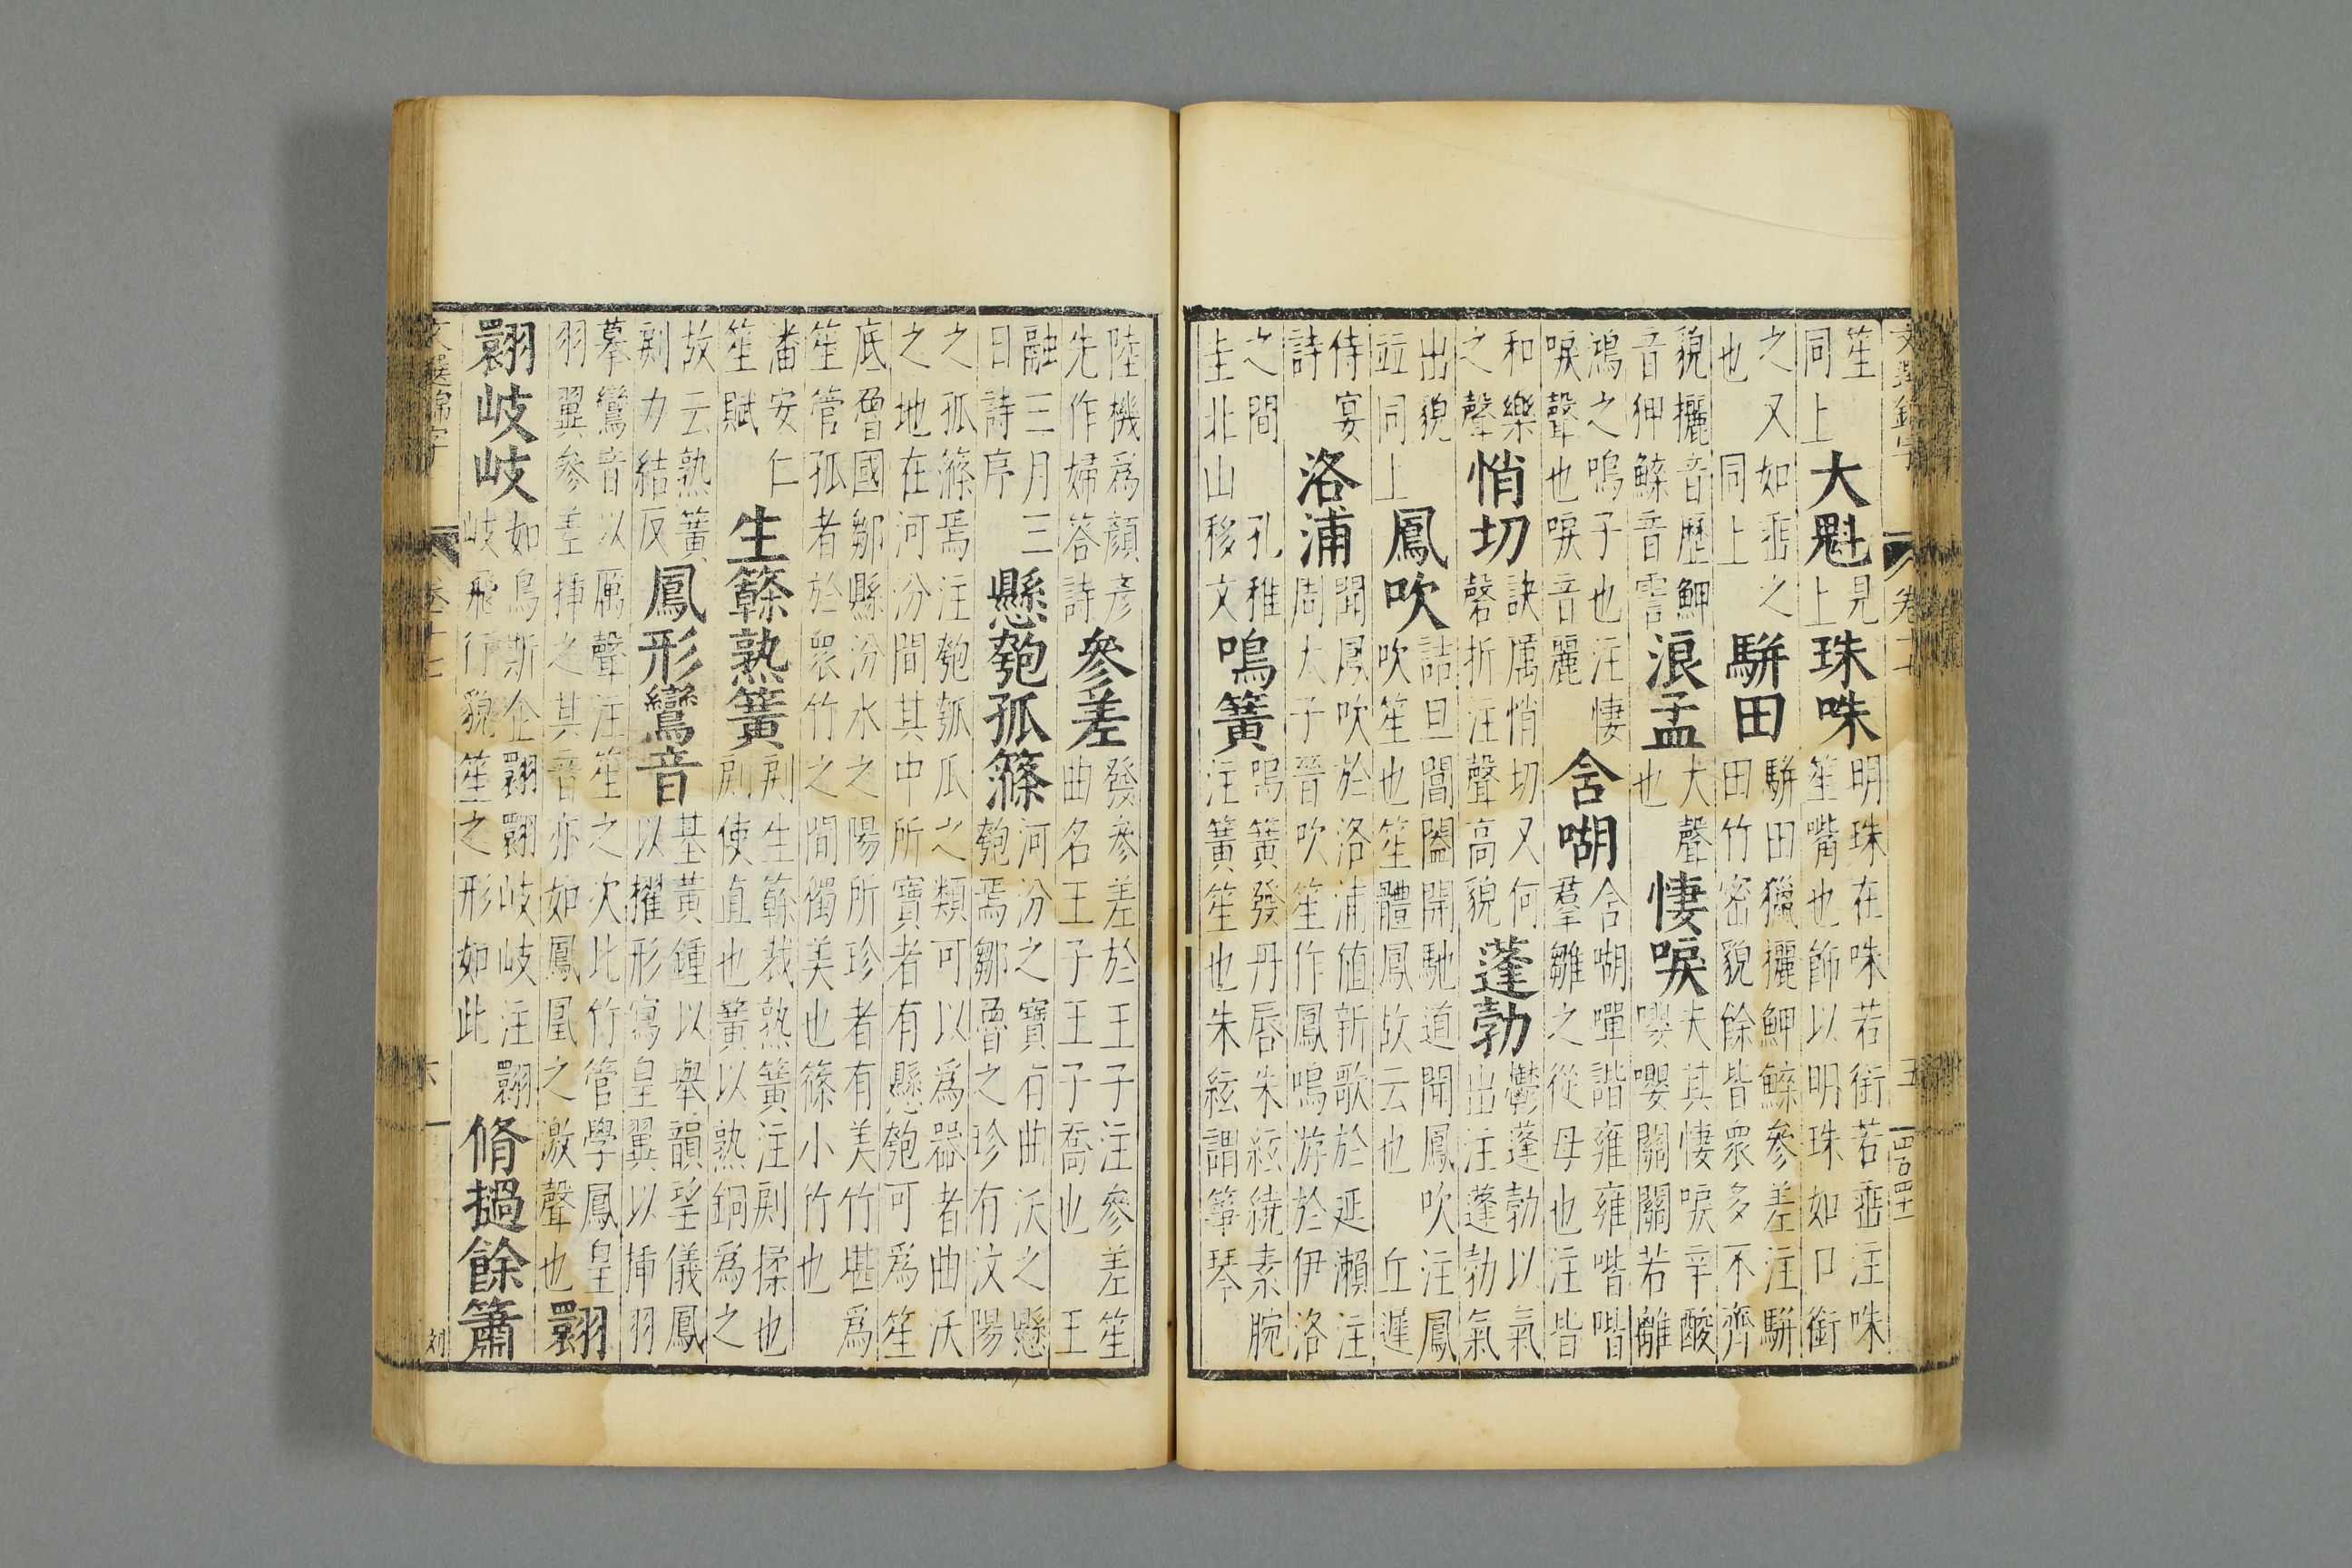 文選錦字 卷十七 五 四百四十
笙同上大魁見上珠咮明珠在咮若銜若垂注咮笙嘴也飾以明珠如口銜
之又如垂之也 同上駢田駢田獵攦魻鰈參差注駢田竹密貌餘皆眾多不齊
貌攦音歷魻音狎鰈音霅浪孟大聲也悽唳夫其悽唳辛酸嚶嚶關關若離
鴻之鳴子也注悽唳聲也唳音麗含㗅含㗅嘽諧雍雍喈喈羣雛之從母也注皆
和樂之聲悄切訣厲悄切又何磬折注聲高貌蓬勃鬱蓬勃以氣出注蓬勃氣
出貌竝同上鳳吹詰旦閶闔開馳道聞鳳吹注鳳吹笙也笙體鳳故云也 丘遲
侍宴詩洛浦聞鳳吹於洛浦值新歌於延瀨注周太子晉吹笙作鳳鳴游於伊洛
之間 孔稚圭北山移文鳴簧鳴簧發丹唇朱絃繞素腕注簧笙也朱絃謂箏琴
陸機為顏彥先作婦荅詩參差發參差於王子注參差笙曲名王子王子喬也 王
融三月三日詩序懸匏孤篠河汾之寶有曲沃之懸匏焉鄒魯之珍有汶陽
之孤篠焉注匏瓠瓜之類可以為器者曲沃之地在河汾間其中所寶者有懸匏可為笙
底魯國鄒縣汾水之陽所珍者有美竹堪為笙管孤者於眾竹之間獨美也篠小竹也
潘安仁笙賦生簳熟簧生簳裁熟簧注揉也使直也簧以熟銅為之
故云熟簧力結反鳳形鸞音基黃鍾以舉韻望儀鳳以擢形寫皇翼以插羽
摹鸞音以厲聲注笙之次比竹管學鳳皇羽翼參差插之其音亦如鳳凰之激聲也翾
翾岐岐如鳥斯企翾翾岐岐注翾岐飛行貌笙之形如此脩檛餘簫
文選錦字 卷十七 六 刘